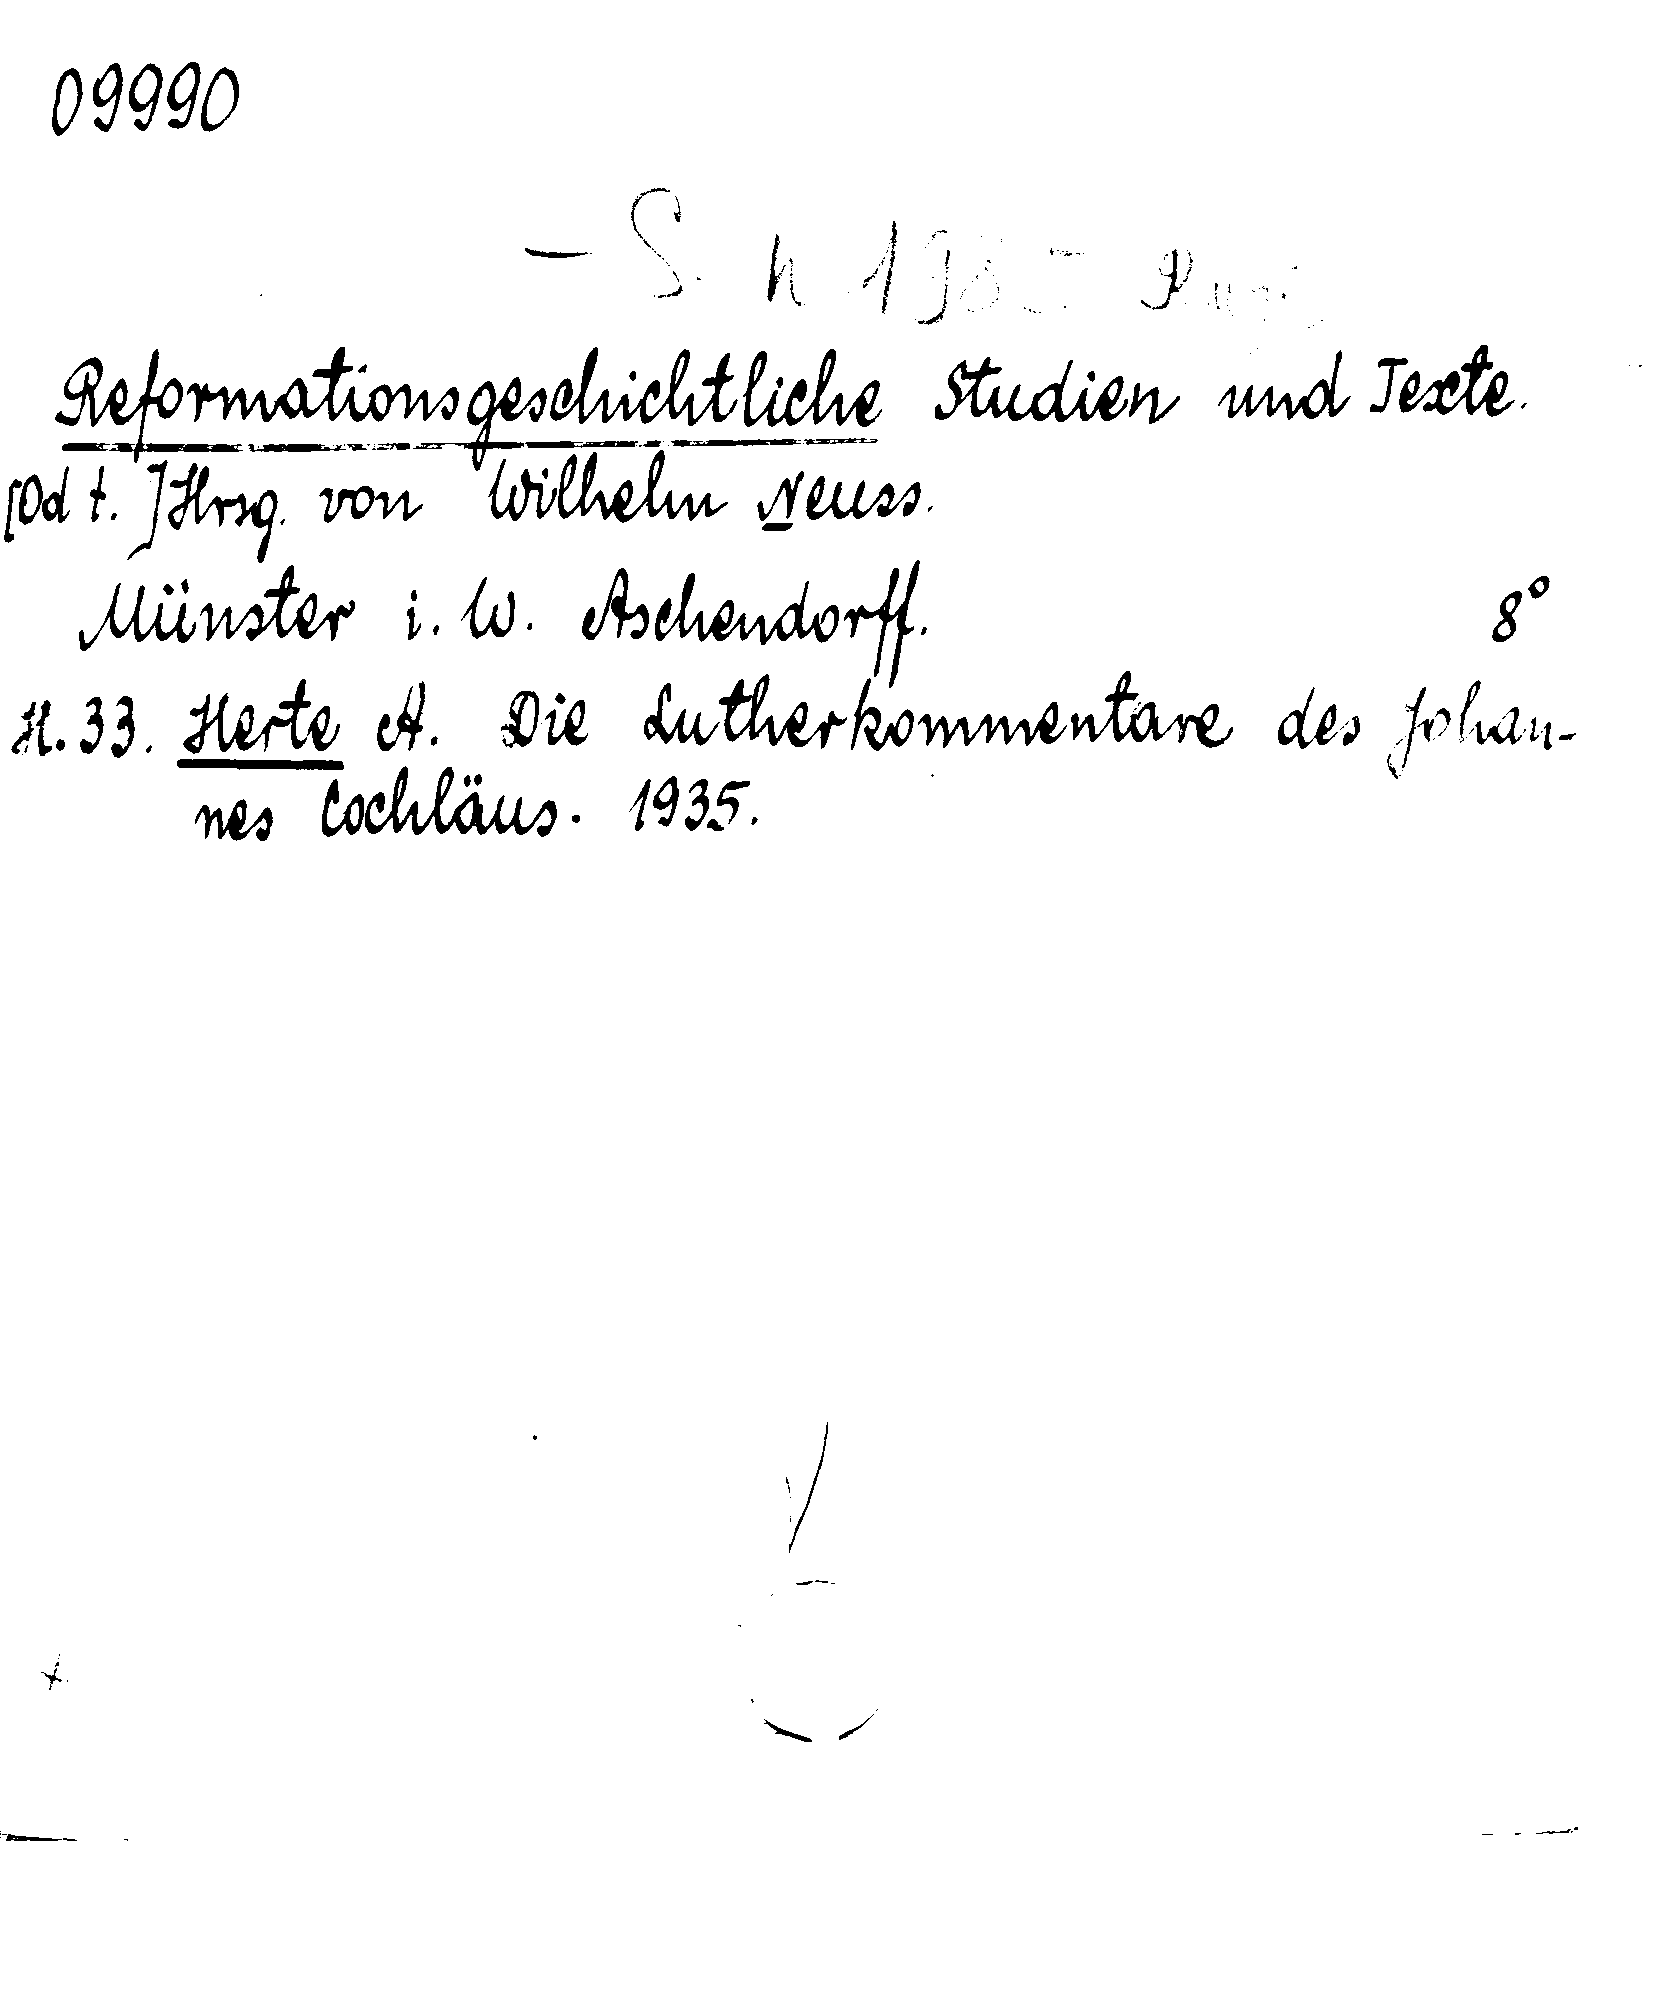 09990
Reformationsgeschichtliche Studien und Texte.
[Od t. ] Hrsg. von Wilhelm Neuss.
Münster i. W. Aschendorff. 8°
H. 33. Herte A. Die Lutherkommentare des Johan-
nes Cochläus. 1935.